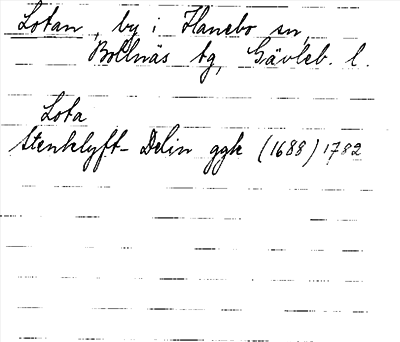 Lotan, by i Hanebo sn,
Bollnäs tg, Gävleb. l.
Lota
Stenklyft- Delin ggk (1688) 1782